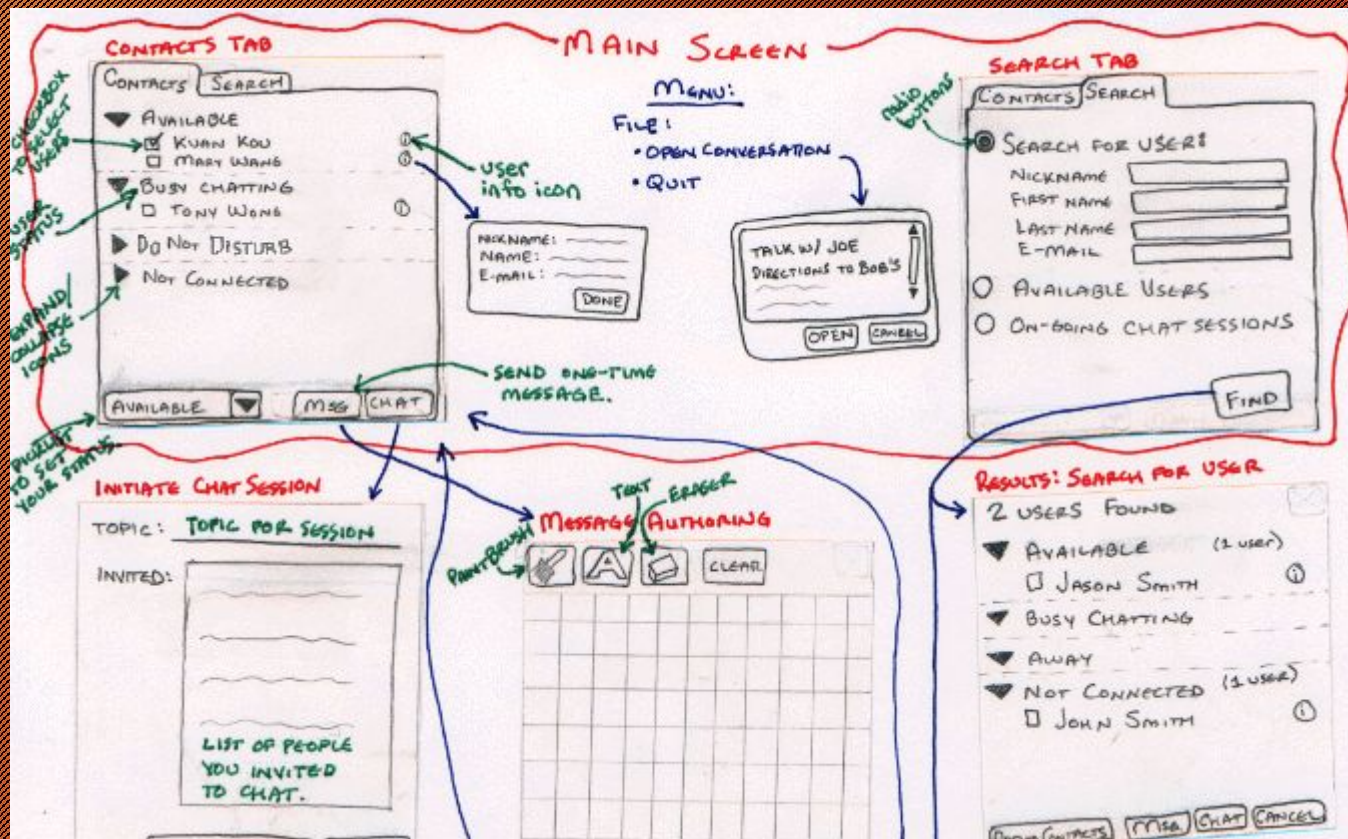 MAIN SCREEN
CONTACTS TAB
CONTACTS SEARCH
AVAILABLE
KUAN KOU
MARY WANG
BUSY CHATTING
TONY WONG
DO NOT DISTURB
NOT CONNECTED
AVAILABLE MSG CHAT
CHECKBOX
TO SELECT
USERS
USER
STATUS
EXPAND/
COLLAPSE
ICONS
PICKLIST
TO SET
YOUR STATUS.
user
info icon
NICKNAME:
NAME:
E-MAIL:
DONE
SEND ONE-TIME
MESSAGE.
MENU:
FILE:
• OPEN CONVERSATION
• QUIT
TALK W/ JOE
DIRECTIONS TO BOB'S
OPEN CANCEL
SEARCH TAB
radio
buttons
CONTACTS SEARCH
SEARCH FOR USER:
NICKNAME
FIRST NAME
LAST NAME
E-MAIL
AVAILABLE USERS
ON-GOING CHAT SESSIONS
FIND
INITIATE CHAT SESSION
TOPIC: TOPIC FOR SESSION
INVITED:
LIST OF PEOPLE
YOU INVITED
TO CHAT.
MESSAGE AUTHORING
PAINTBRUSH
TEXT
ERASER
A CLEAR
RESULTS: SEARCH FOR USER
2 USERS FOUND
AVAILABLE (1 user)
JASON SMITH
BUSY CHATTING
AWAY
NOT CONNECTED (1 USER)
JOHN SMITH
CONTACTS MSG CHAT CANCEL